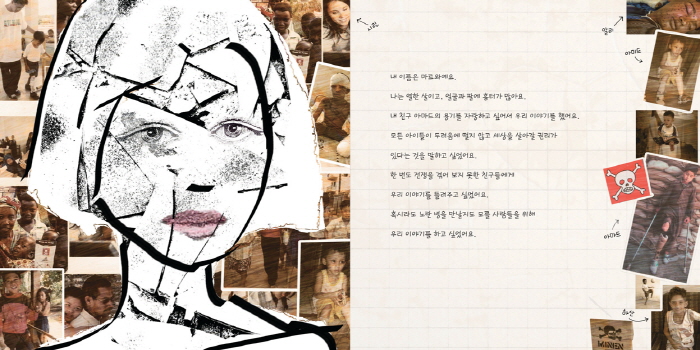 내 이름은 마르와예요.
나는 열한 살이고, 얼굴과 팔에 흉터가 많아요.
내 친구 아마드의 용기를 자랑하고 싶어서 우리 이야기를 했어요.
모든 아이들이 두려움에 떨지 않고 세상을 살아갈 권리가
있다는 것을 말하고 싶었어요.
한 번도 전쟁을 겪어 보지 못한 친구들에게
우리 이야기를 들려주고 싶었어요.
혹시라도 노란 병을 만날지도 모를 사람들을 위해
우리 이야기를 하고 싶었어요.
아마드
MINEN